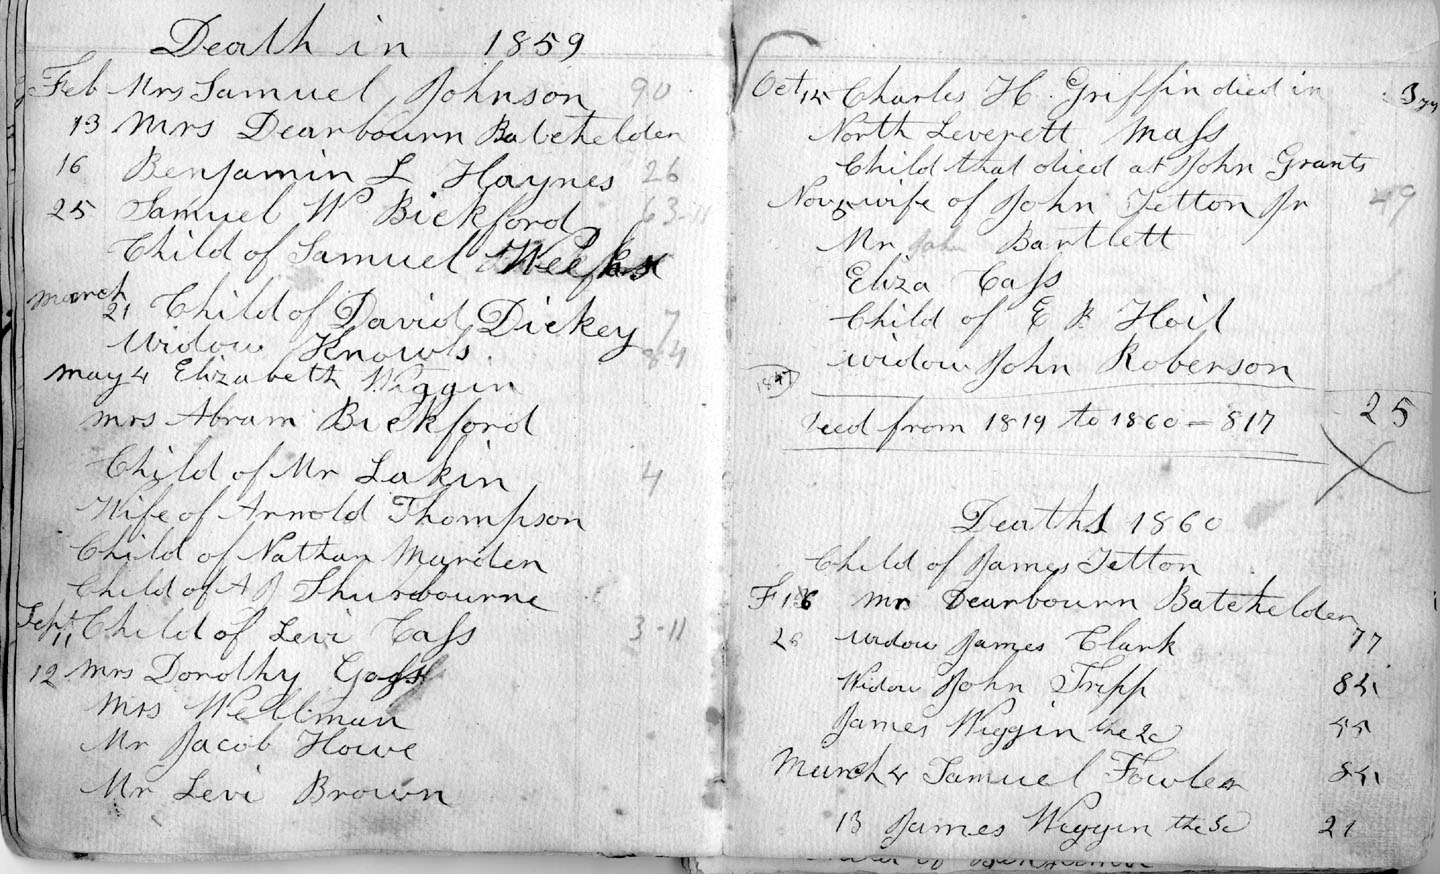 Death in 1859
Feb Mrs Samuel Johnson 90
13 Mrs Dearbourn Batchelder
16 Benjamin L Haynes 26
25 Samuel W Bickford 63-11
Child of Samuel Weeks
March
21 Child of David Dickey 7
Widow Knowls 84
May 4 Elizabeth Wiggin
Mrs Abram Bickford
Child of Mr Lakin 4
Wife of Arnold Thompson
Child of Nathan Marden
Child of A J Shurbourne
Sept 11 Child of Levi Cass 3-11
12 Mrs Dorothy
Mrs Wellman
Mr Jacob Howe
Mr Levi Brown
Oct 14 Charles H. Griffin died in
North Leverett Mass
Child that died at John Grants
Nov wife of John Tetton Jr 49
Mr John Bartlett
Eliza Cass
Child of E Hoit
Widow John Roberson
25
from 1819 to 1860 = 817
Deaths 1860
Child of James Tetton
F 16 Mr Dearbourn Batchelder
26 Widow James Clark 77
Widow John Tripp
James Wiggin the 2d
March 4 Samuel Fowler
13 James Wiggin the 3d 21